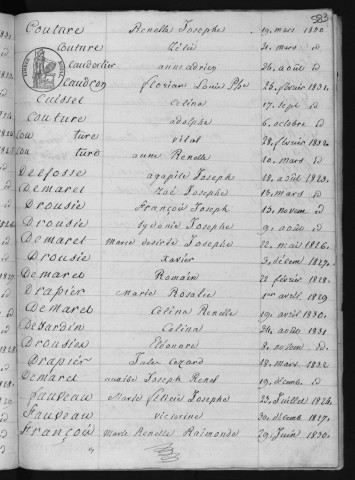 583
Couture Renelle Josephe 19. mars 1830
Couture Zélie 2. mars id
Caudrelier anne adrien 26. août id
Caudron florian Louis Phe 25. février 1831.
Cuisset Celina 17. sept id
Couture adolphe 6. octobre id
Couture vital 28. février 1832.
Couture anne Renelle 10. mars id
Delfosse agapite Joseph 18. août 1823.
Demaret Zoé Josephe 13. mars id
Drousie François Joseph 13. novem id
Drousie Sydonie Josephe 9. août id
Demaret Marie desirée Josephe 22. mai 1826.
Drousie Xavier 3. décem 1827.
Demaret Romain 22 février 1828.
Drapier Marie Rosalie 1er avril 1829
Demaret Célina Renelle 19. avril 1830.
Desardin Célina 24. août 1831
Drousie Eléonore 8. novem id
Drapier Jules Cezard 18. mars 1832
Demaret Joseph René 19. décemb. id
fauveau Marie felicie Josephe 23. Juillet 1824.
fauveau victorine 30. décemb 1827.
François Marie Renelle Raimonde 29. Juin 1830.